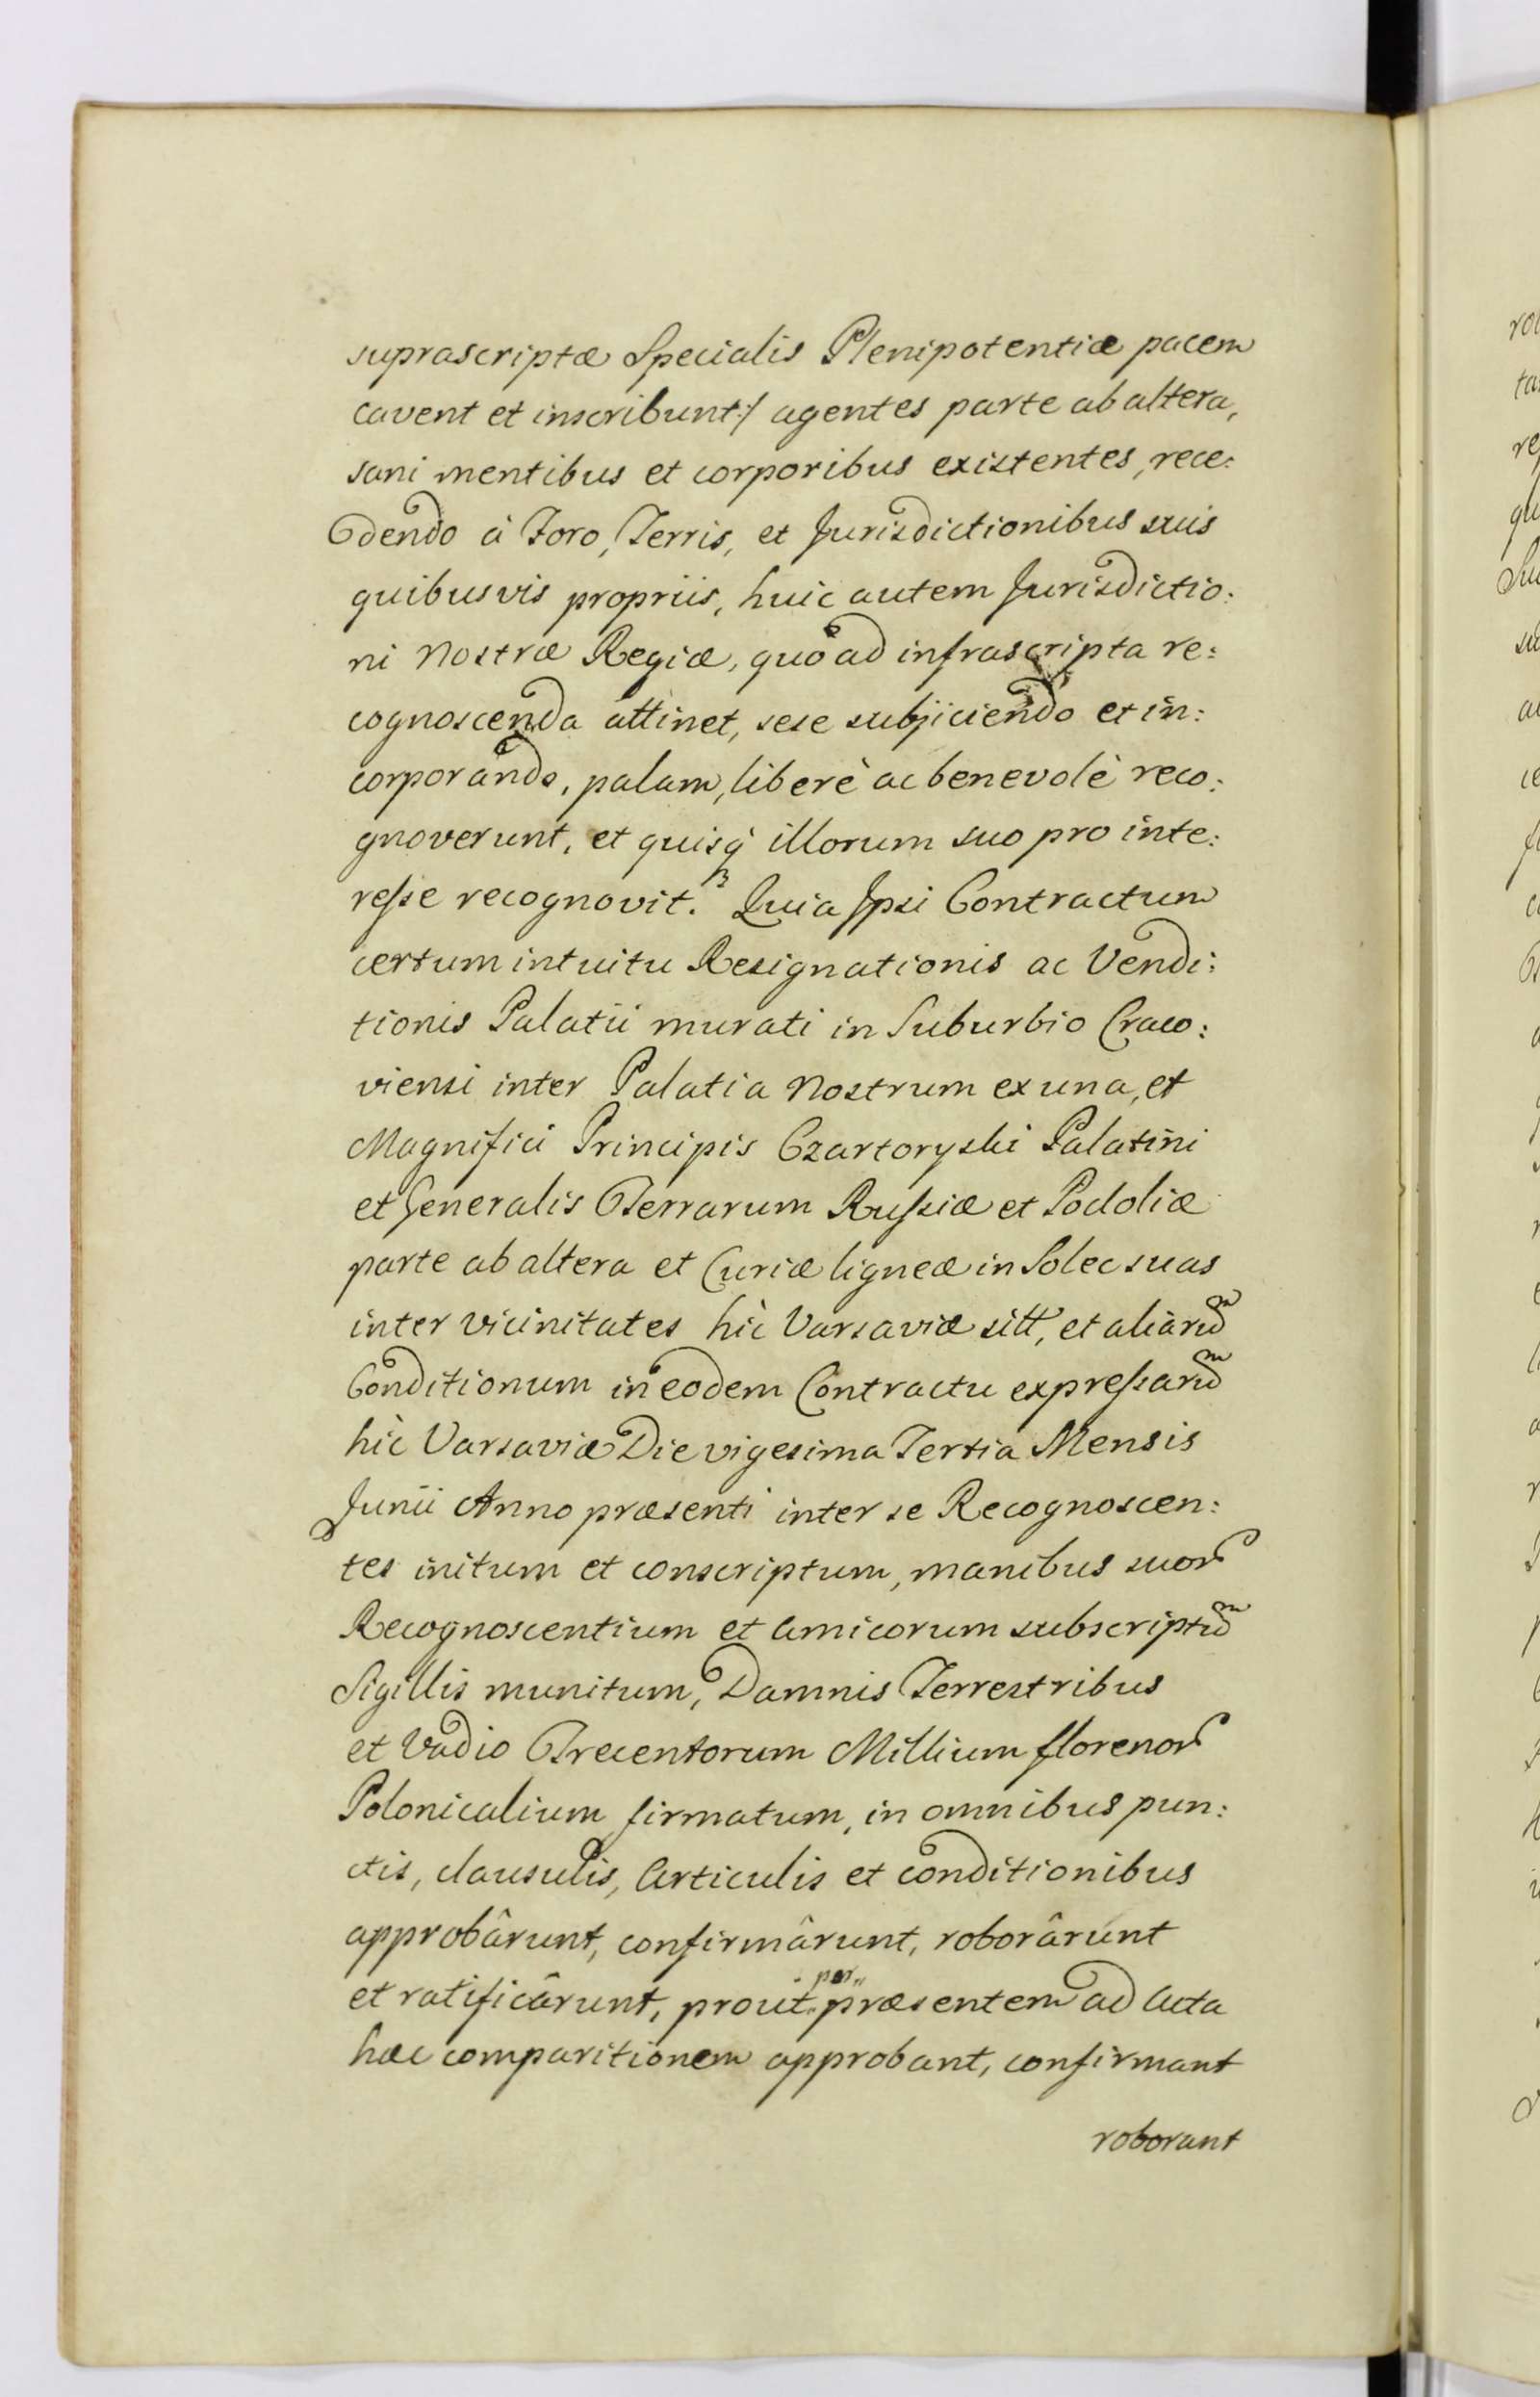 suprascriptæ Specialis Plenipotentiæ pacem
cavent et inscribunt:/ agentes parte ab altera,
sani mentibus et corporibus existentes, rece:
dendo à Foro, Terris, et Jurisdictionibus suis
quibusvis propriis, huic autem Jurisdictio:
ni Nostræ Regiæ, quo ad infrascripta re:
cognoscenda attinet, sese subjiciendo et in:
corporando, palam, liberè ac benevolè reco:
gnoverunt, et quisq₃ illorum suo pro inte:
reſse recognovit. Quia Ipsi Contractum
certum intuitu Resignationis ac Vendi:
tionis Palatii murati in Suburbio Craco:
viensi inter Palatia Nostrum ex una, et
Magnifici Principis Czartoryski Palatini
et Generalis Terrarum Ruſsiæ et Podoliæ
parte ab altera et Curiæ ligneæ in Solec suas
inter vicinitates hìc Varsaviæ sitt, et aliarũ
Conditionum in eodem Contractu expreſsarũ
hìc Varsaviæ Die vigesima Tertia Mensis
Junii Anno præsenti inter se Recognoscen:
tes initum et conscriptum, manibus suor
Recognoscentium et Amicorum subscriptũ
Sigillis munitum, Damnis Terrestribus
et Vadio Trecentorum Millium florenor
Polonicalium firmatum, in omnibus pun:
ctis, clausulis, Articulis et conditionibus
approbârunt, confirmârunt, roborârunt
et ratificârunt, prout per præsentem ad Acta
hæc comparitionem approbant, confirmant
roborant